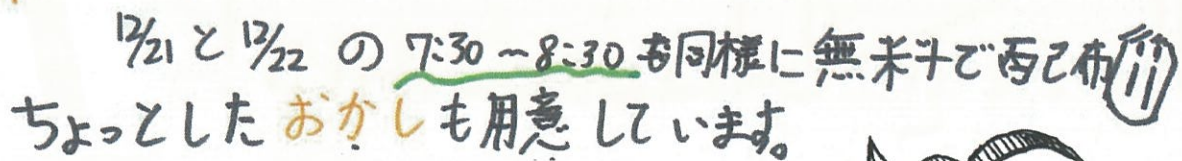 12/21と12/22の7:30~8:30も同様に無料で配布
ちょっとしたおかしも用意しています。